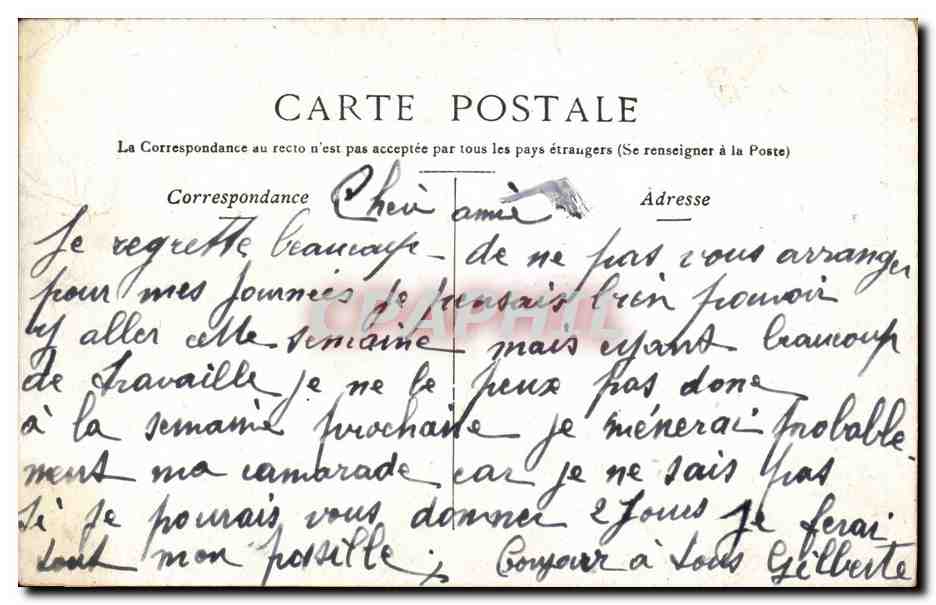 CARTE POSTALE
La Correspondance au recto n'est pas acceptée par tous les pays étrangers (Se renseigner à la Poste)
Correspondance
Adresse
Chèr amie
Je regrette beaucoup de ne pas vous arranger
pour mes journées je pensais bien pouvoir
y aller cette semaine mais ayant beaucoup
de travaille je ne le peux pas donc
à la semaine prochaine je ménerai probable-
ment ma camarade car je ne sais pas
si je pourais vous donner 2 jours je ferai
tout mon possille; Bonjour à tous Gilberte
CPAPHIL